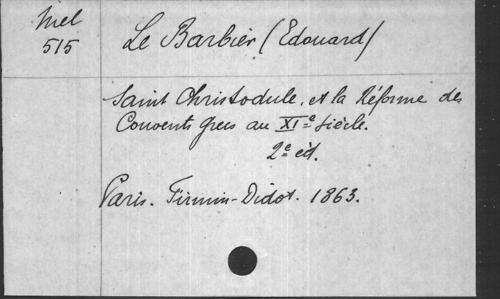 Mel
515
Le Barbier (Edouard)
Saint Christodule, et la Réforme des
Couvents grecs au XIe siècle.
2e éd.
Paris. Firmin-Didot. 1863.